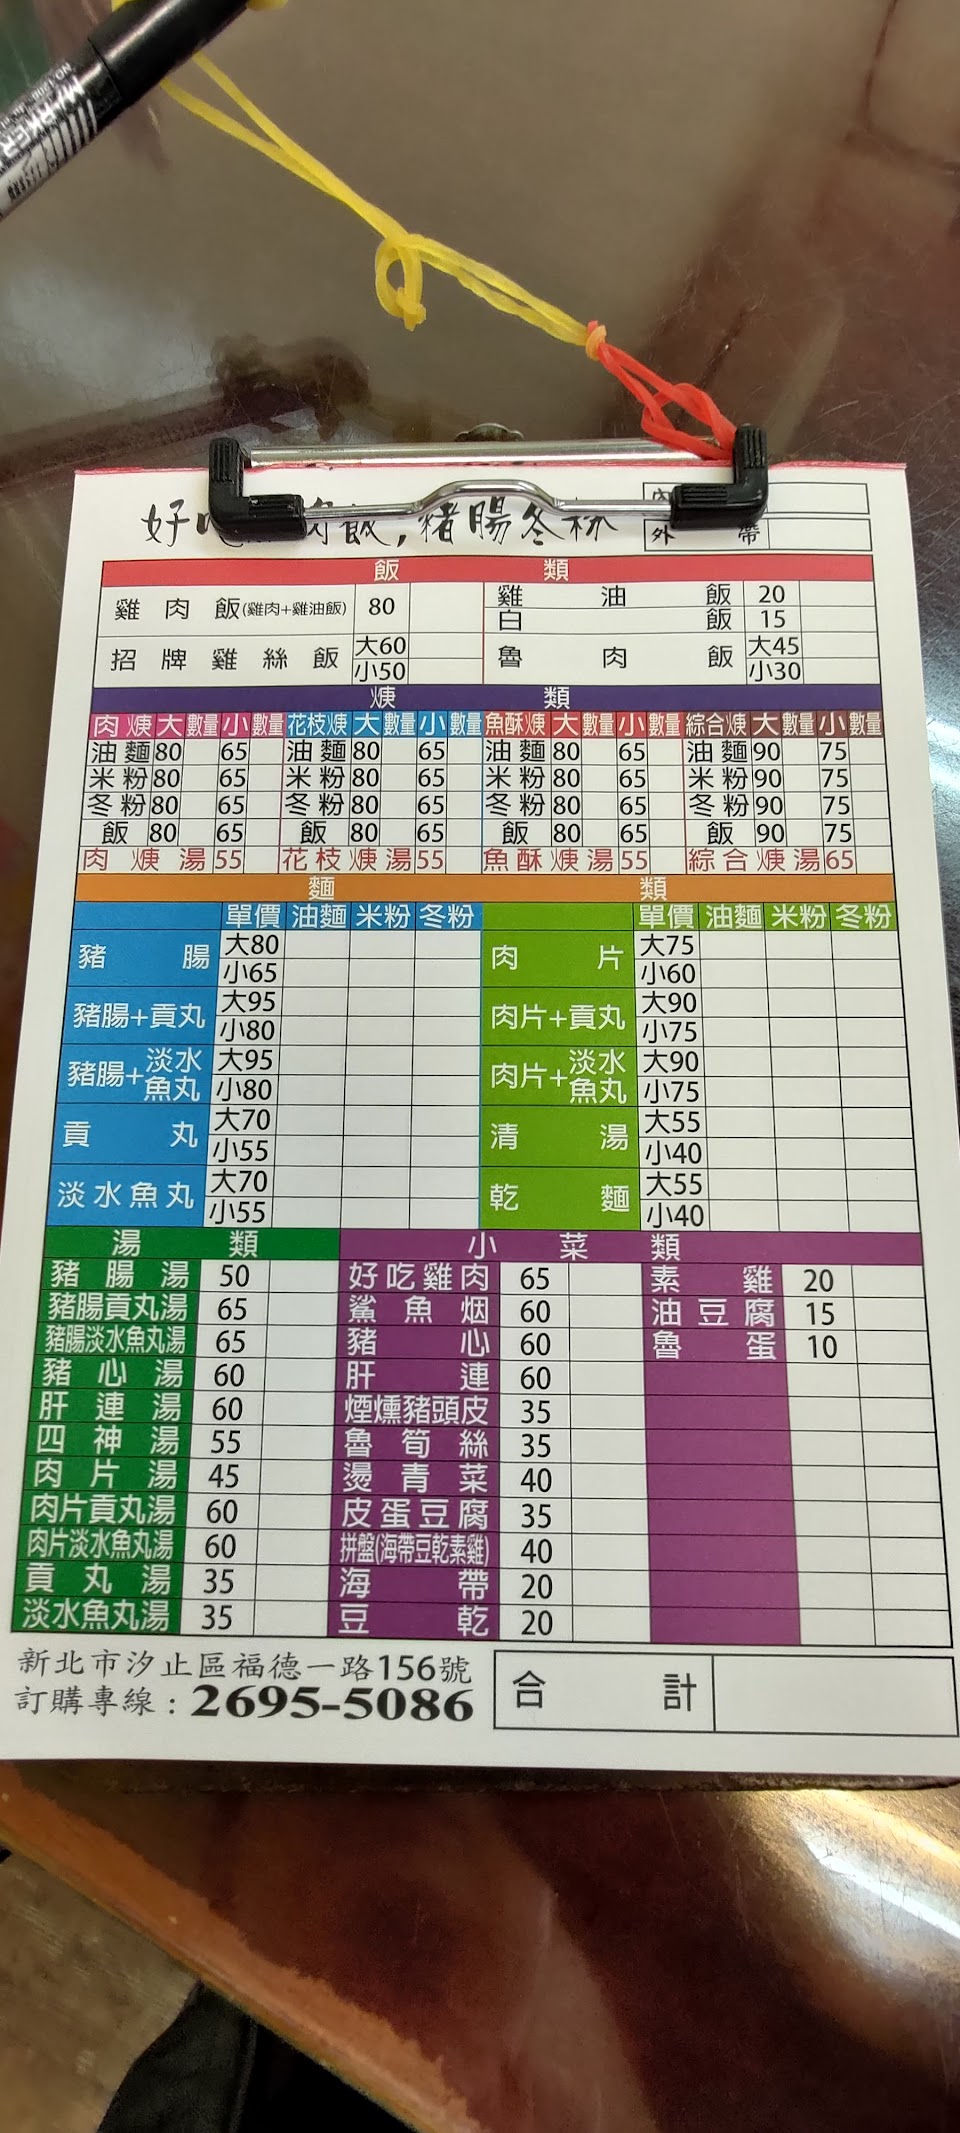 MARKER
好吃雞肉飯,豬腸冬粉
內
外 帶
飯 類
雞肉飯(雞肉+雞油飯) 80 雞油飯 20
白飯 15
招牌雞絲飯 大60 小50 魯肉飯 大45 小30
焿 類
肉焿 大 數量 小 數量 花枝焿 大 數量 小 數量 魚酥焿 大 數量 小 數量 綜合焿 大 數量 小 數量
油麵 80 65 油麵 80 65 油麵 80 65 油麵 90 75
米粉 80 65 米粉 80 65 米粉 80 65 米粉 90 75
冬粉 80 65 冬粉 80 65 冬粉 80 65 冬粉 90 75
飯 80 65 飯 80 65 飯 80 65 飯 90 75
肉焿湯 55 花枝焿湯 55 魚酥焿湯 55 綜合焿湯 65
麵 類
單價 油麵 米粉 冬粉 單價 油麵 米粉 冬粉
豬腸 大80 小65 肉片 大75 小60
豬腸+貢丸 大95 小80 肉片+貢丸 大90 小75
豬腸+淡水魚丸 大95 小80 肉片+淡水魚丸 大90 小75
貢丸 大70 小55 清湯 大55 小40
淡水魚丸 大70 小55 乾麵 大55 小40
湯 類 小 菜 類
豬腸湯 50 好吃雞肉 65 素雞 20
豬腸貢丸湯 65 鯊魚烟 60 油豆腐 15
豬腸淡水魚丸湯 65 豬心 60 魯蛋 10
豬心湯 60 肝連 60
肝連湯 60 煙燻豬頭皮 35
四神湯 55 魯筍絲 35
肉片湯 45 燙青菜 40
肉片貢丸湯 60 皮蛋豆腐 35
肉片淡水魚丸湯 60 拼盤(海帶豆乾素雞) 40
貢丸湯 35 海帶 20
淡水魚丸湯 35 豆乾 20
新北市汐止區福德一路156號
訂購專線:2695-5086
合 計